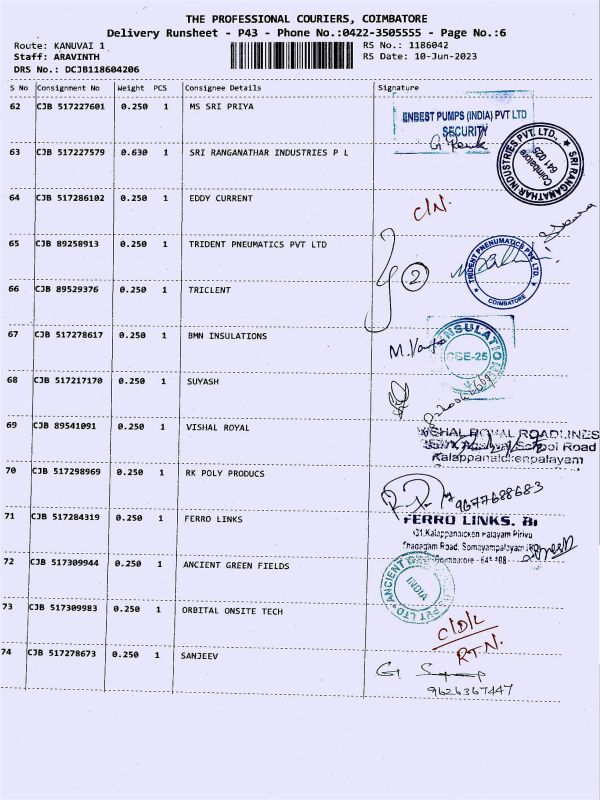 THE PROFESSIONAL COURIERS, COIMBATORE
Delivery Runsheet - P43 - Phone No.:0422-3505555 - Page No.:6
Route: KANUVAI 1
RS No.: 1186042
Staff: ARAVINTH
RS Date: 10-Jun-2023
DRS No.: DCJB118604206
S No Consignment No Weight PCS Consignee Details Signature
62 CJB 517227601 0.250 1 MS SRI PRIYA
ENBEST PUMPS (INDIA) PVT LTD
SECURITY
63 CJB 517227579 0.630 1 SRI RANGANATHAR INDUSTRIES P L
SRI RANGANATHAR INDUSTRIES PVT LTD.,
Coimbatore
641 025
64 CJB 517286102 0.250 1 EDDY CURRENT
C/N.
65 CJB 89258913 0.250 1 TRIDENT PNEUMATICS PVT LTD
2
TRIDENT PHENUMATICS PVT. LTD.
COIMBATORE
66 CJB 89529376 0.250 1 TRICLENT
67 CJB 517278617 0.250 1 BMN INSULATIONS
CBE-25
68 CJB 517217170 0.250 1 SUYASH
69 CJB 89541091 0.250 1 VISHAL ROYAL
VISHAL ROYAL ROADLINES
School Road
Kalappanaickenpalayam
70 CJB 517298969 0.250 1 RK POLY PRODUCS
9677688683
71 CJB 517284319 0.250 1 FERRO LINKS
FERRO LINKS.
Kalappanaicken Palayam Pirivu
Road, Somayampalayam
Coimbatore - 641 108
72 CJB 517309944 0.250 1 ANCIENT GREEN FIELDS
ANCIENT PVT LTD
INDIA
73 CJB 517309983 0.250 1 ORBITAL ONSITE TECH
C/D/L
RTN.
74 CJB 517278673 0.250 1 SANJEEV
9626367447